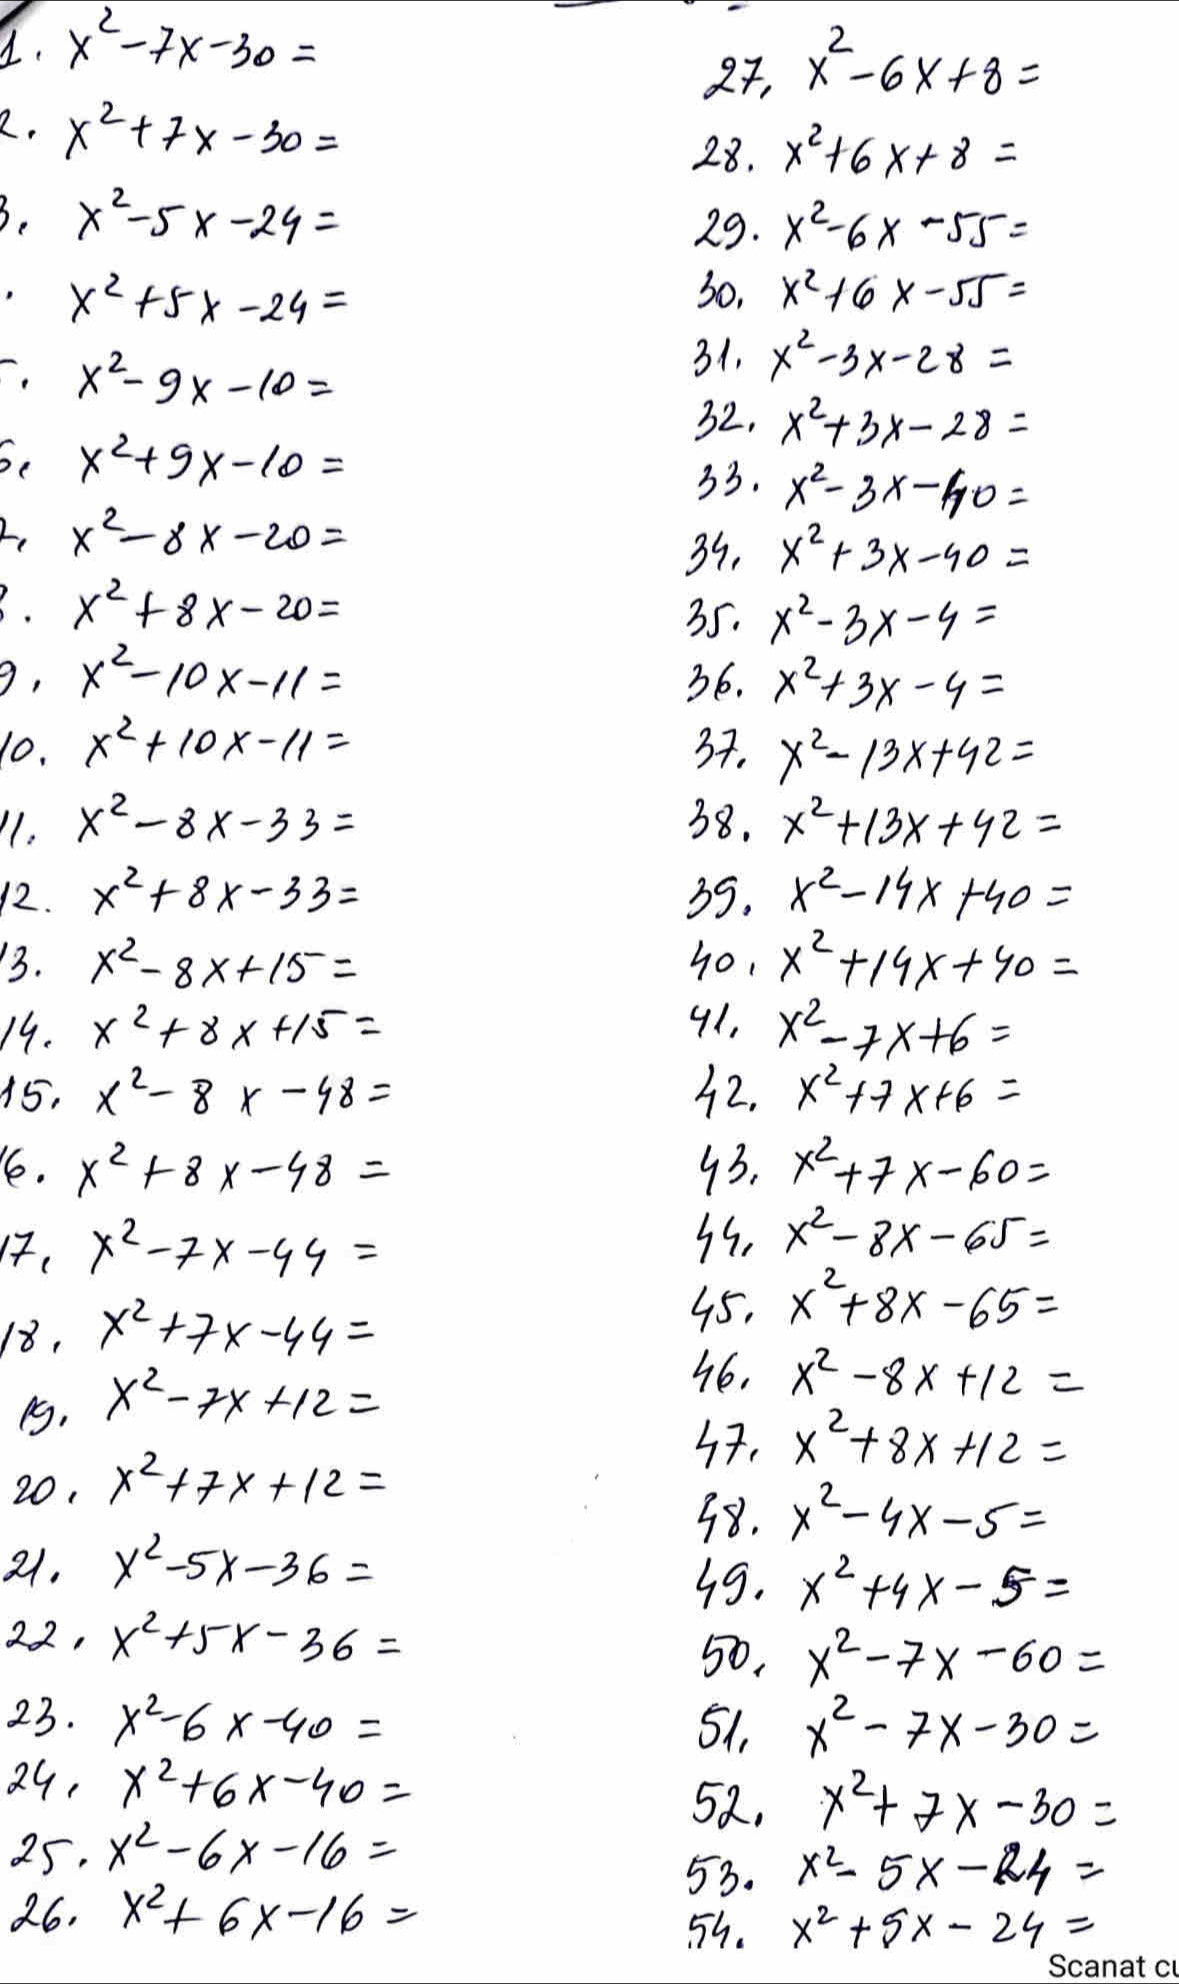 1. x²-7x-30=
2. x²+7x-30=
3. x²-5x-24=
. x²+5x-24=
5. x²-9x-10=
6. x²+9x-10=
7. x²-8x-20=
8. x²+8x-20=
9. x²-10x-11=
10. x²+10x-11=
11. x²-8x-33=
12. x²+8x-33=
13. x²-8x+15=
14. x²+8x+15=
15. x²-8x-48=
16. x²+8x-48=
17. x²-7x-44=
18. x²+7x-44=
19. x²-7x+12=
20. x²+7x+12=
21. x²-5x-36=
22. x²+5x-36=
23. x²-6x-40=
24. x²+6x-40=
25. x²-6x-16=
26. x²+6x-16=
27. x²-6x+8=
28. x²+6x+8=
29. x²-6x-55=
30. x²+6x-55=
31. x²-3x-28=
32. x²+3x-28=
33. x²-3x-40=
34. x²+3x-40=
35. x²-3x-4=
36. x²+3x-4=
37. x²-13x+42=
38. x²+13x+42=
39. x²-14x+40=
40. x²+14x+40=
41. x²-7x+6=
42. x²+7x+6=
43. x²+7x-60=
44. x²-8x-65=
45. x²+8x-65=
46. x²-8x+12=
47. x²+8x+12=
48. x²-4x-5=
49. x²+4x-5=
50. x²-7x-60=
51. x²-7x-30=
52. x²+7x-30=
53. x²-5x-24=
54. x²+5x-24=
Scanat cu